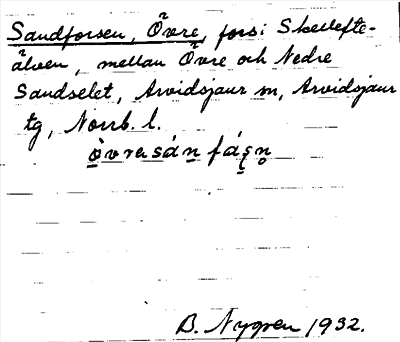 Sandforsen, Övre, fors i Skellefte-
älven, mellan Övre och Nedre
Sandselet, Arvidsjaur sn, Arvidsjaur
tg, Norrb. l.
B. Nygren 1932.